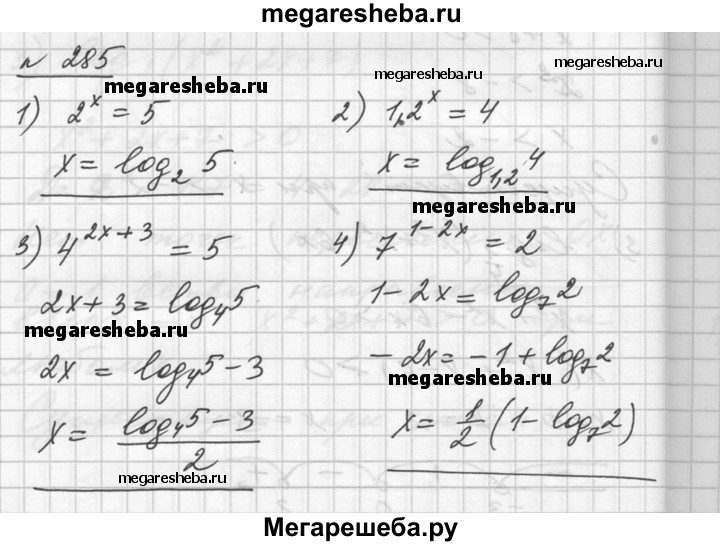 megaresheba.ru
№ 285
megaresheba.ru
megaresheba.ru
megaresheba.ru
1) 2^x = 5
x = log_2 5
2) 1,2^x = 4
x = log_{1,2} 4
megaresheba.ru
3) 4^{2x+3} = 5
2x+3 = log_4 5
megaresheba.ru
2x = log_4 5 - 3
x = \frac{log_4 5 - 3}{2}
megaresheba.ru
4) 7^{1-2x} = 2
1-2x = log_7 2
-2x = -1 + log_7 2
megaresheba.ru
x = \frac{1}{2} (1 - log_7 2)
Мегарешеба.ру